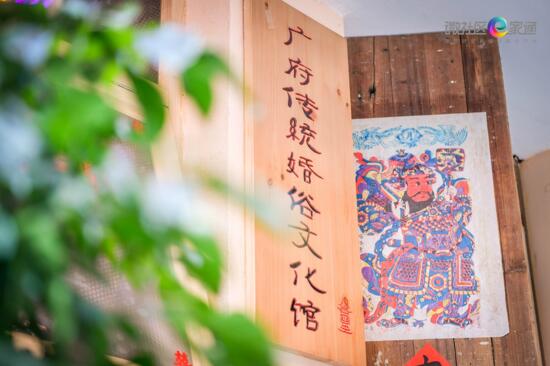 广府传统婚俗文化馆
微社区e家通